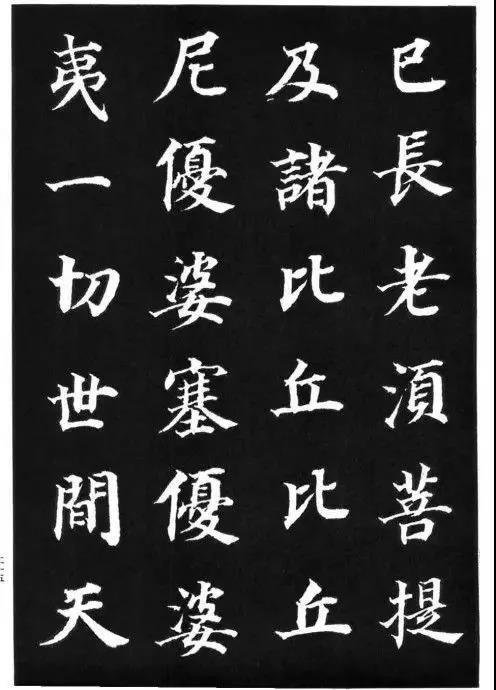 已長老湏菩提
及諸比丘比丘
尼優婆塞優婆
夷一切世間天
二一五